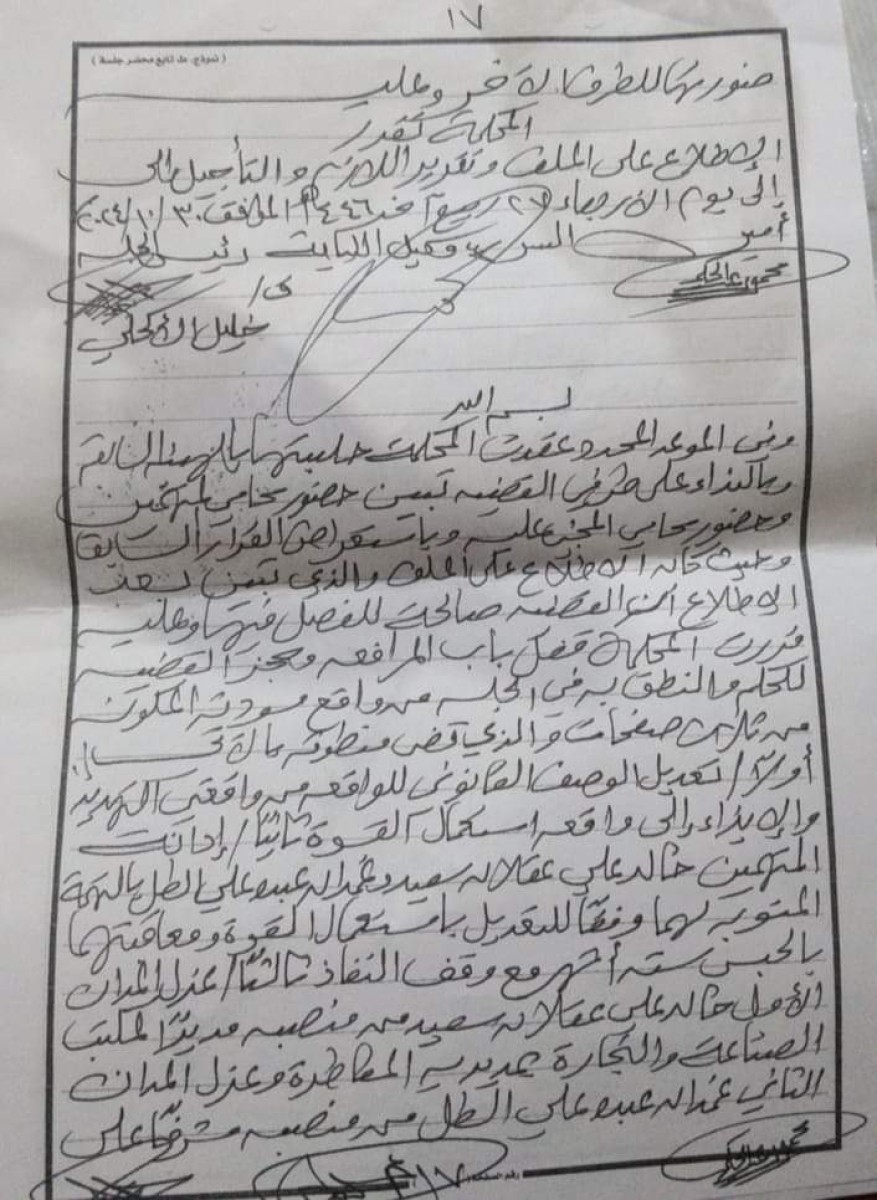 ١٧
( نموذج. ملف تابع محضر جلسة )
صنوريهما للطرف الآخر وعليه
المحكمة تقرر
الإطلاع على الملف وتقرير اللازم والتأجيل إلى
إلى يوم الأربعاء ٢٧ ربيع آخر ١٤٤٦هـ الموافق ٣٠/١٠/٢٠٢٤
أمين السر وكيل النيابة رئيس الجلسة
محمود عبدالحكيم
خليل الأكحلي
بسم الله
وفي الموعد المحدد عقدت المحكمة جلستها بالهيئة السابقة
وبالنداء على طرفي القضية تبين حضور محامي المتهمين
وحضور محامي المجني عليه وباستعراض القرار السابق
وحيث كان الاطلاع على الملف والذي تبين بعد
الاطلاع أن القضية صالحة للفصل فيها وعليه
قررت المحكمة قفل باب المرافعة وحجز القضية
للحكم والنطق به في الجلسة من واقع مسودته المكونة
من ثلاث صفحات والذي قضى منطوقه بما لآتي
أولاً/ تعديل الوصف القانوني للواقعه من واقعتي التهديد
والإيذاء إلى واقعه استعمال القوة ثانياً/ إدانت
المتهمين خالد علي عقلان سعيد وعبدالله عبده علي الطل بالتهمة
المنسوبه لهما وفقاً للتعديل باستعمال القوة ومعاقبتهما
بالحبس ستة أشهر مع وقف النفاذ ثالثاً/ عزل المدان
الأول خالد علي عقلان سعيد من منصبه مديراً لمكتب
الصناعة والتجارة بمديريه المظفرة وعزل المدان
الثاني عبدالله عبده علي الطل من منصبه مشرفاً على
محمود عبدالحكيم
رقم الصفحة ١٧